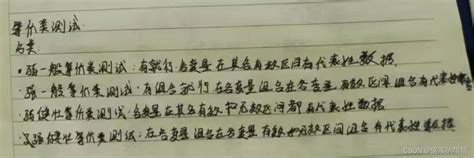 等价类测试
分类
·弱一般等价类测试：有效 各变量在其各有效区间有代表性数据
·强一般等价类测试：有 组合 各变量组合在各变量有效区间组合有代表性
弱健壮等价类测试：各变量在其各有效和无效区间都有代表性数据
强健壮等价类测试：在各变量组合在各变量有效和无效区间组合有代表性数据
CSDN